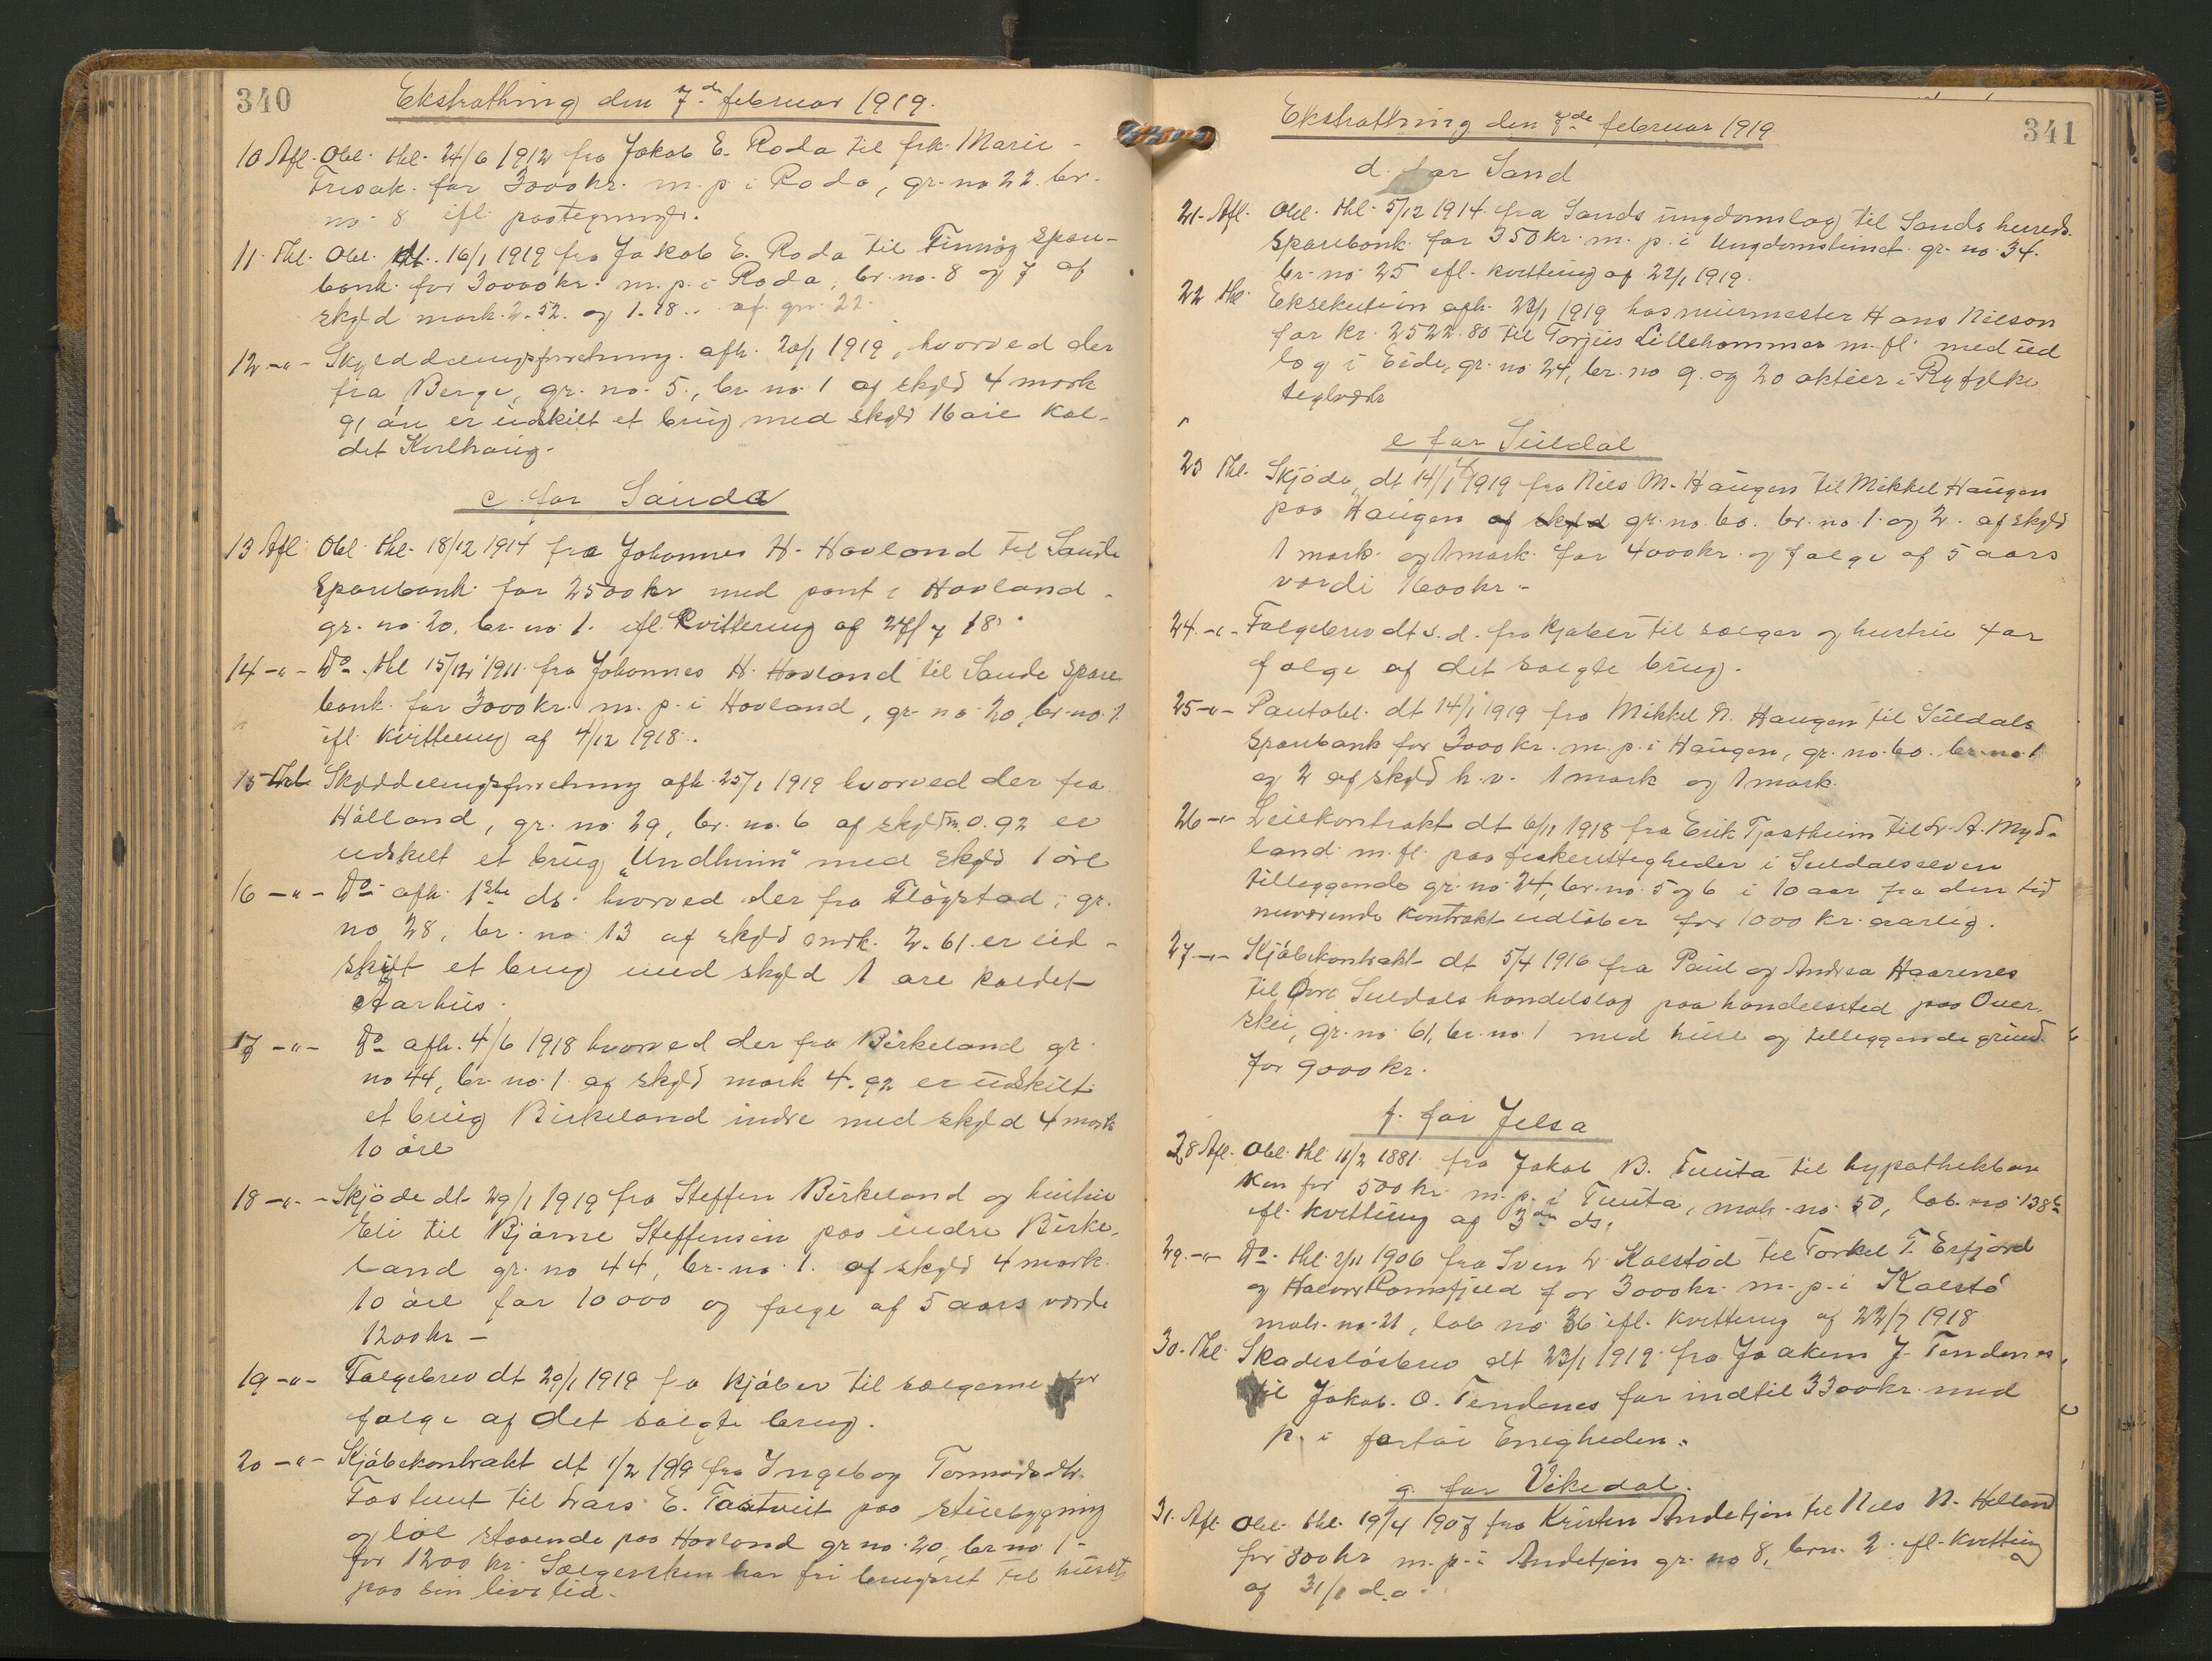 340
Ekstrathing den 7de februar 1919.
10 Afl. Obl. thl. 24/6 1912 fra Jakob E. Roda til frk. Marie
for 3000 kr. m. p. i Roda, gr. no 22. br.
no. 8 ifl. paategninger.
11. Thl. Obl. dt. 16/1 1919 fra Jakob E. Roda til Finnøy Spare-
bank for 30000 kr. m. p. i Roda, br. no. 8 og 7 af
skyld mark. 2.52. og 1.18. af gr. 22.
12 -"- Skylddelingsforretning afh. 20/1 1919, hvorved der
fra Berge, gr. no. 5., br. no. 1 af skyld 4 mark
91 øre er udskilt et brug med skyld 16 øre kal-
det Kvilhaug.
c. for Sauda
13 Afl. Obl. thl. 18/12 1914 fra Johannes H. Hovland til Saude
Sparebank for 2500 kr med pant i Hovland
gr. no 20, br. no 1. ifl. Kvittering af 27/7 18.
14 -"- Do thl 15/12 1911. fra Johannes H. Hovland til Saude Spare
bank for 3000 kr. m. p. i Hovland, gr. no 20, br. no. 1
ifl. Kvittering af 4/12 1918.
15 Thl. Skylddelingsforretning afh. 25/1 1919 hvorved der fra
Hålland, gr. no 29, br. no. 6 af skyld m. 0.92 er
udskilt et brug „Undheim" med skyld 1 øre
16 -"- Do afh. 1ste ds. hvorved der fra Fløgstad, gr.
no 28, br. no 13 af skyld mrk. 2.61 er ud-
skilt et brug med skyld 1 øre kaldet
Aarhus.
17 -"- Do afh. 4/6 1918 hvorved der fra Birkeland gr.
no 44, br. no. 1 af skyld mark 4.92 er udskilt
et brug Birkeland indre med skyld 4 mark
10 øre
18 -"- Skjøde dt. 29/1 1919 fra Steffen Birkeland og hustru
Eli til Bjarne Steffensen paa indre Birke-
land gr. no 44, br. no. 1. af skyld 4 mark
10 øre for 10000 og følge af 5 aars værdi
1200 kr –
19 -"- Følgebrev dt 29/1 1919 fra kjøber til sælgerne for
følge af det solgte brug.
20 -"- Kjøbekontrakt dt 1/2 1919 fra Ingeborg
til Lars E. Tastveit paa stuebygning
og løe staaende paa Hovland gr no. 20, br no 1
for 1200 kr. Sælgersken har fri brugsret til huset
paa sin livstid.
341
Ekstrathing den 7de februar 1919
d. for Sand
21. Afl. Obl. thl. 5/12 1914 fra Sands ungdomslag til Sands hereds
Sparebank for 350 kr. m. p. i Ungdomsheimet gr. no. 34.
br. no. 25 ifl. kvittering af 22/1 1919.
22 thl. Eksekution afh. 23/1 1919 hos murmester Hans Nilson
for kr. 2522.80 til Torjus Lillehammer m. fl. med ud
læg i Eide, gr. no 24, br. no 9. og 20 aktier i Ryfylke
teglværk
e for Suldal
23 Thl. Skjøde, dt 14/1 1919 fra Nils M. Haugen til Mikkel Haugen
paa Haugen af skyld gr. no. 60. br. no. 1. og 2. af skyld
1 mark og 1 mark for 4000 kr. og følge af 5 aars
værdi 1600 kr. –
24. -"- Følgebrev dt s. d. fra kjøber til sælger og hustru for
følge af det solgte brug.
25 -"- Pantobl. dt 14/1 1919 fra Mikkel N. Haugen til Suldals
Sparebank for 3000 kr. m. p. i Haugen, gr. no. 60. br. no. 1
og 2 af skyld h. v. 1 mark og 1 mark.
26 -"- Leiekontrakt dt 6/11 1918 fra Erik Tjøstheim til Dr. A. Myd-
land m. fl. paa fiskerettigheder i Suldalselven
tilliggende gr. no 24, br. no. 5 og 6 i 10 aar fra den tid
nuværende kontrakt udløber for 1000 kr. aarlig.
27 -"- Kjøbekontrakt dt 5/4 1916 fra Paul og Andrea Haarenes
til Øvre Suldals handelslag paa handelssted paa Over-
skei, gr. no. 61, br. no. 1 med huse og tilliggende grund
for 9000 kr.
f. for Jelsa
28 Afl. Obl. thl. 11/2 1881. fra Jakob B. Tuuta til hypothekban
ken for 500 kr. m. p. i Tuuta, matr. no. 50, løb. no 138b
ifl. kvittering af 3de ds.
29. -"- Do thl. 2/11 1906 fra Sven L. Kalstød til Torkel T. Erfjord
og Halvor Ramsfjeld for 3000 kr. m. p. i Kalstø
matr. no. 21, løb no 36 ifl. kvittering af 22/7 1918
30. Thl. Skadesløsbrev dt 23/1 1919 fra Joakim J. Tendenes
til Jakob O. Tendenes for indtil 3300 kr. med
p. i fartøi Enigheden.
g. for Vikedal.
31. Afl. Obl. thl. 19/4 1907 fra Kristen Andetjøn til Nils N. Helland
for 800 kr m. p. i Andetjøn gr. no 8, brn. 2. ifl. kvittering
af 31/1 d. a.